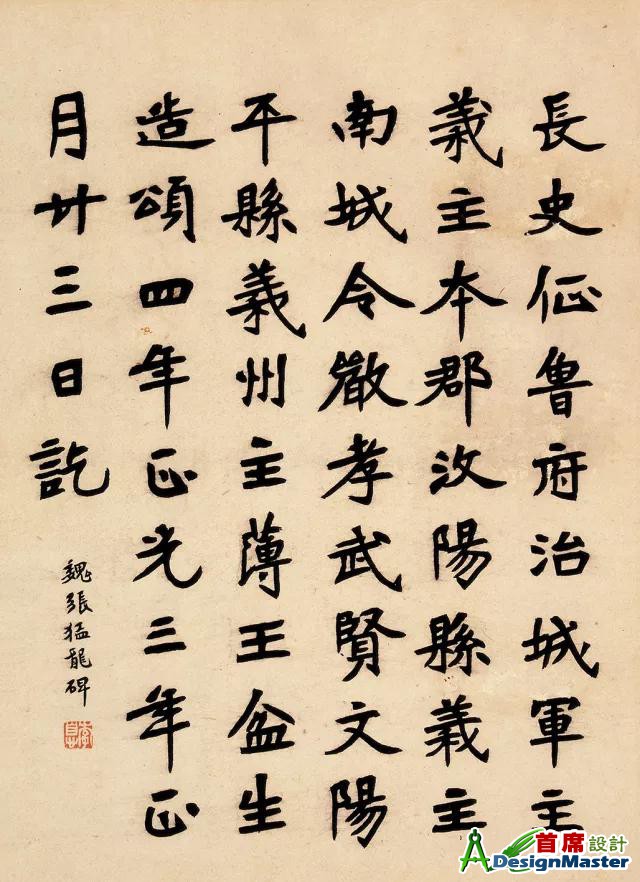 長史征魯府治城軍主
義主本郡汶陽縣義主
南城令嚴孝武賢文陽
平縣義州主薄王盆生
造頌四年正光三年正
月廿三日訖
魏張猛龍碑
首席設計
DesignMaster